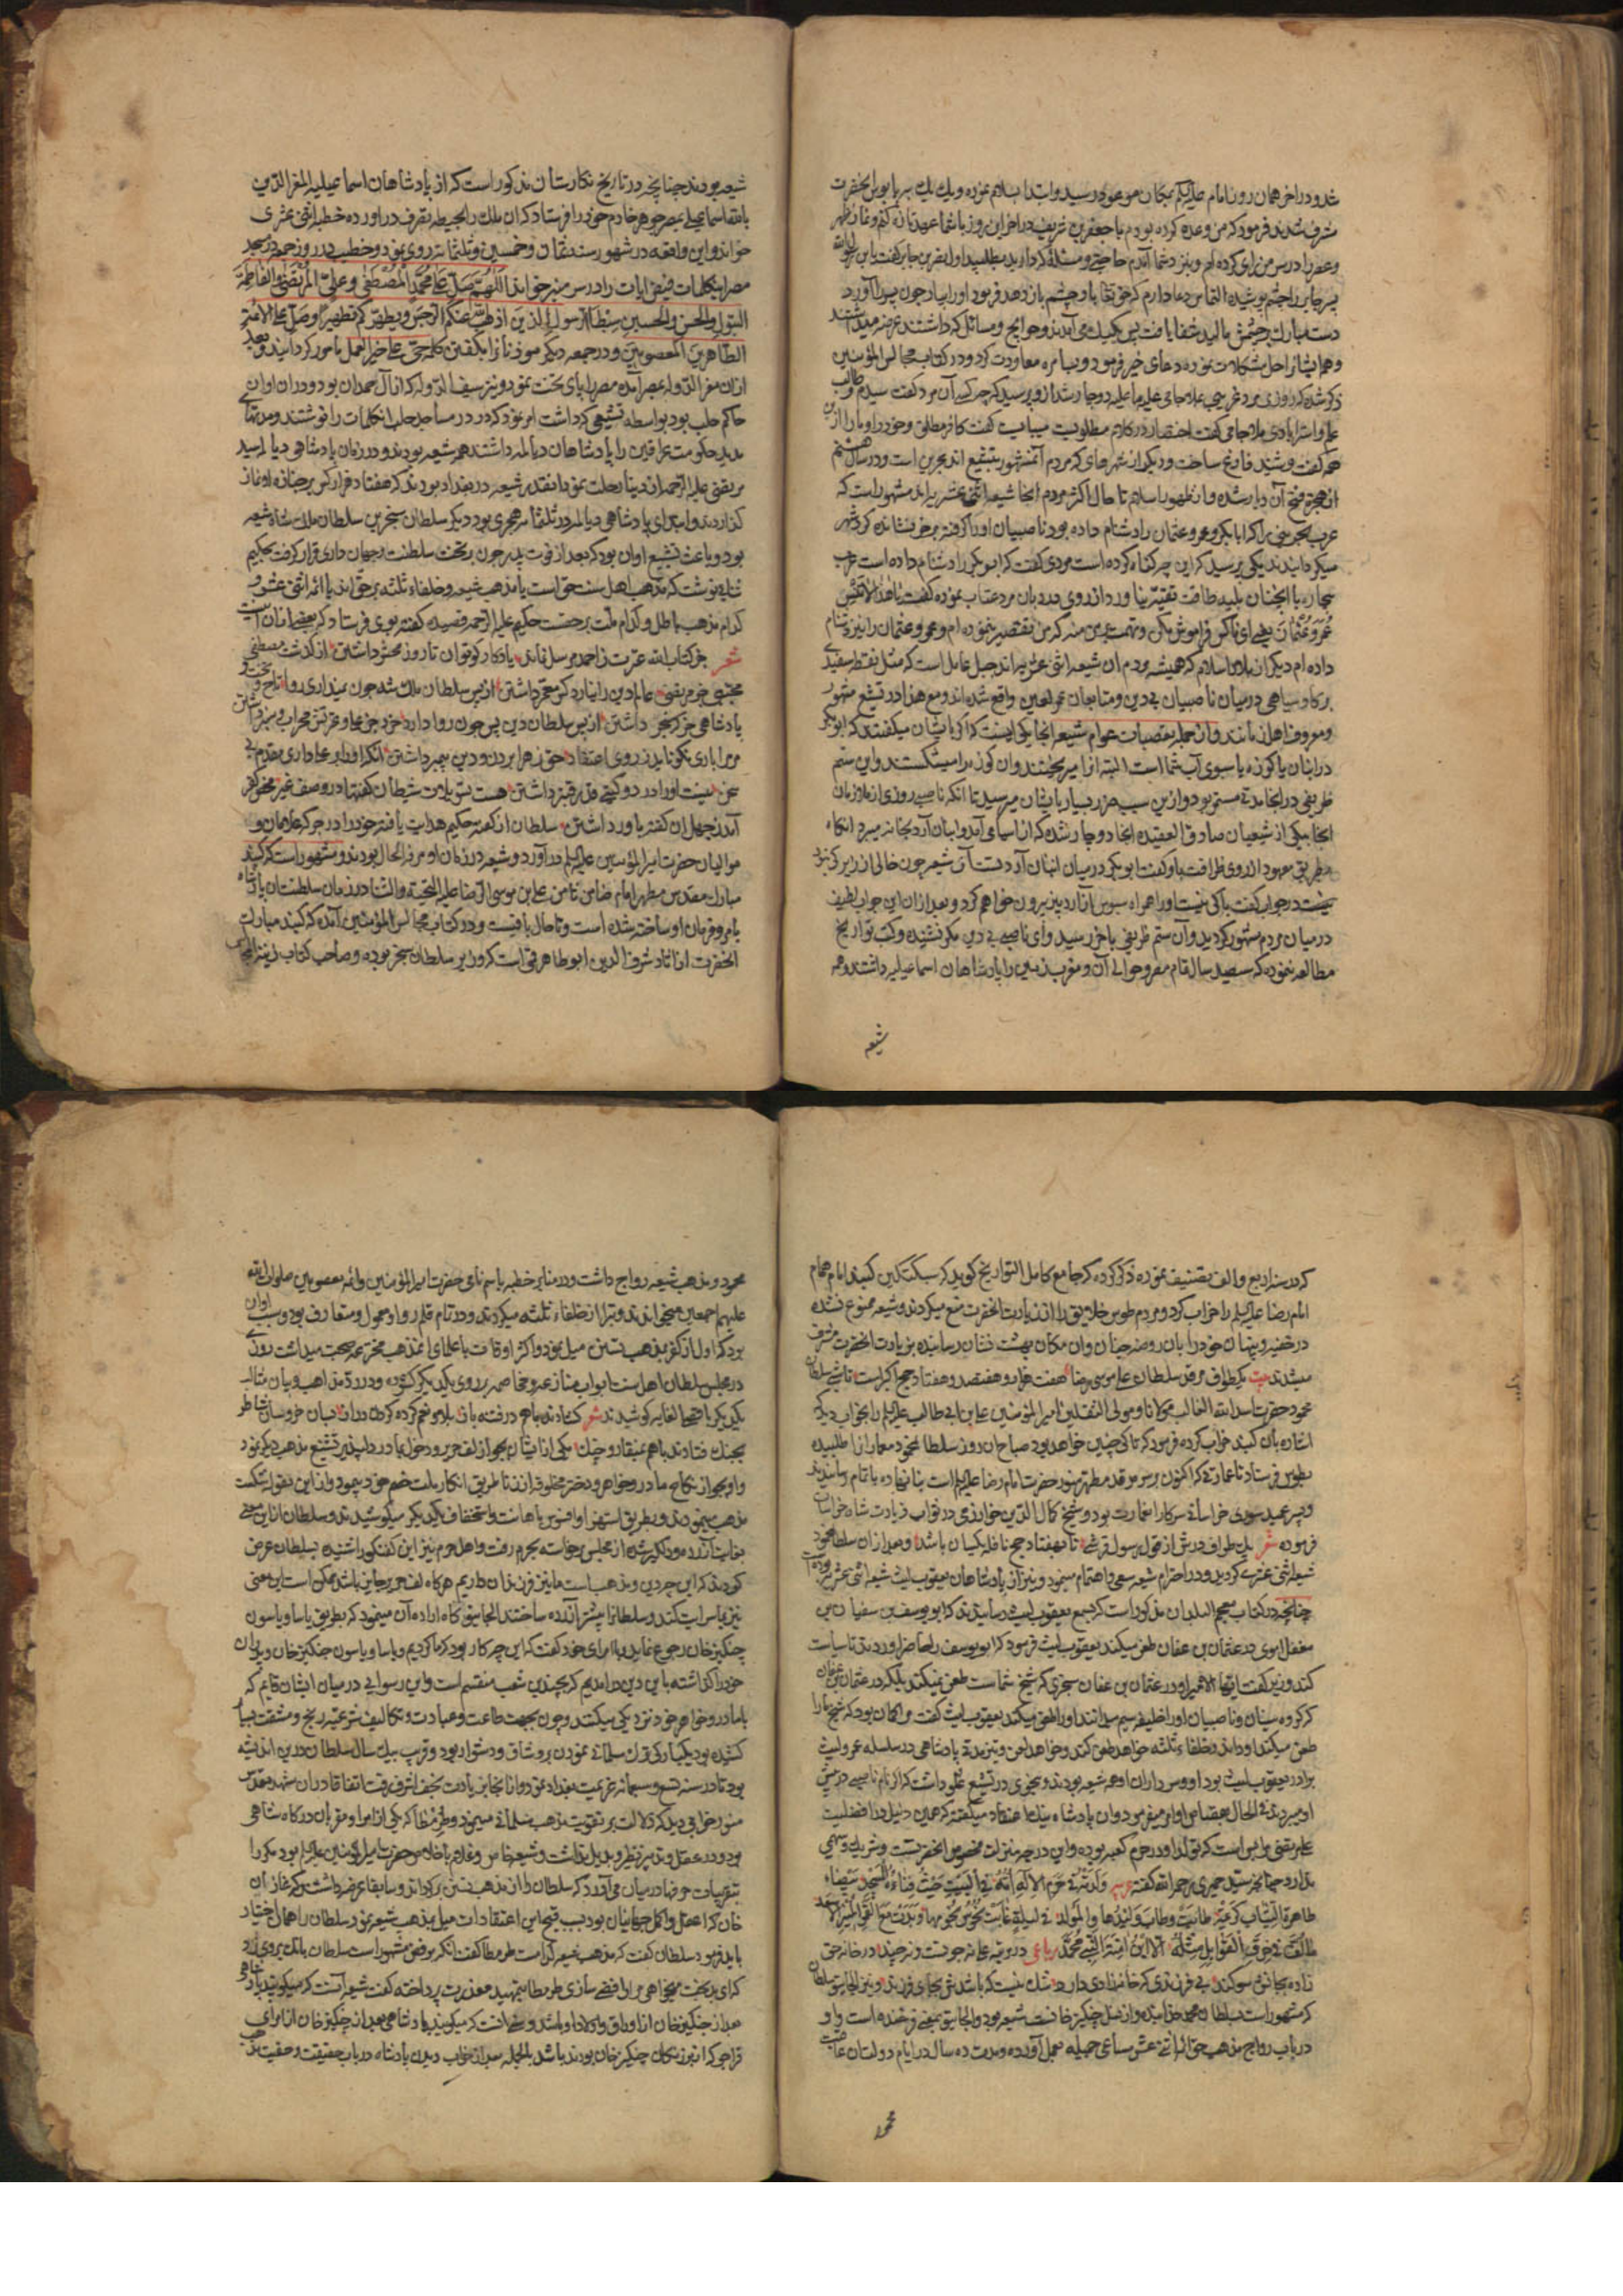 شد و در آخر همان روز امام علیه‌السلم بمکان موعود رسید و ابتدا بسلام نموده و یک یک بپابوس آنحضرت
مشرف شدند فرمود که من وعده کرده بودم با جعفر بن شریف در آخر این روز باشما عهد تازه کنم و نماز ظهر
و عصر را در سر من رای کرده‌ام و بنزد شما آمدم حاجتی و مسئله که دارید بطلبید اول نضر بن جابر گفت یا بن رسول الله
پسر جابر را چشم پوشیده التماس دعا دارم که حق تعالی باو چشم باز دهد فرمود او را بیار چون پسر را آورد
دست مبارک بر چشمش مالید شفا یافت پس یک یک می‌آمدند و حوایج و مسائل که داشتند عرضه میداشتند
و همه ایشانرا حل مشکلات نموده دعای خیر فرمود و بسامره معاودت کرد و در کتاب مجالس المؤمنین
ذکر شده که روزی مرد غریبی بملا جامی علیه ما علیه دوچار شد ازو پرسید که چه کسی آن مرد گفت سیدم و طالب
علم و استرابادی ملا جامی گفت اختصار در کلام مطلوبست میبایست گفت کافر مطلق و خود را و ما را از این
همه گفت و شنید فارغ ساخت و دیگر از شهرهای که مردم آنمشهور بتشیع اند بحرین است و در سال هشتم
از هجرت فتح آن دیار شده و از ظهور اسلام تا حال اکثر مردم آنجا شیعه اثنی عشریه‌اند مشهور است که
عرب بحرینی را که ابابکر و عمر و عثمان را دشنام داده بود ناصبیان او را گرفته بر خر نشانده گرد شهر
میگردانیدند یکی پرسید که این چه گناه کرده است مردی گفت که ابوبکر را دشنام داده است عرب
بیچاره با آنچنان بلیه طاقت تقیه نیاورد از روی درد بان مرد عتاب نموده گفت یا هذا لا تنس
عمر و عثمان یعنی ای ناکس فراموش مکن و تهمت بر من منه که من تقصیر ننموده‌ام و عمر و عثمان را نیز دشنام
داده‌ام دیگر از بلاد اسلام که همیشه مردم آن شیعه اثنی عشریه‌اند جبل عامل است که مثل نقطه سفیدی
بر گاو سیاهی در میان ناصبیان بی‌دین و متابعان عمر لعین واقع شده‌اند و مع هذا در تشیع مشهور
و معروف اهل زمانند و از جمله تعصبات عوام شیعه آنجا یکی اینست که اگر بایشان میگفتند که ابوبکر
در انبان یا کوزه یا سبوی آب شما است البته آنرا میریختند و آن کوزه را میشکستند و این ستم
ظریفی در آنجا مدتی مستمر بود و ازین سبب ضرر بسیار بایشان میرسید تا آنکه ناصبی روزی از ملازمان
آنجا بیکی از شیعیان صادق العقیده آنجا دوچار شد که از آسیا می‌آمد و انبان آرد بخانه میبرد آنگاه
بطریق معهود از روی ظرافت باو گفت ابوبکر در میان انبان آرد تست آن شیعه چون خالی از زیرکی نبود
در جواب گفت باکی نیست او را همراه سبوس آن آرد بیزیرون خواهم کرد و بعد از آن این جواب لطیف
در میان مردم مشهور گردید و آن ستم ظریفی باخر رسید و ای ناصبی بی‌دین مگر نشنیده و کتب تواریخ
مطالعه ننموده که سیصد سال تمام مصر و حوالی آن و مغرب زمین را پادشاهان اسماعیلیه داشتند و همه
شیعه
شیعه بودند چنانچه در تاریخ نگارستان مذکور است که از پادشاهان اسماعیلیه المعز الدین
خواند و این واقعه در شهور سنه ثمان و خمسین و ثلثمائه روی نمود و خطیب در روز جمعه در مسجد
مصر این کلمات فیض آیات را در سر منبر خواند اللهم صل علی محمد المصطفی و علی المرتضی و الفاطمة
البتول و الحسن و الحسین سبطا الرسول الذین اذهب الله عنکم الرجس و یطهرکم تطهیرا و صل علی الائمة
الطاهرین المعصومین و در جمعه دیگر موذنانرا بگفتن کلمه حی علی خیر العمل مامور گردانیدند و بعد
ازان معز الدوله بمصر آمده مصر را پای تخت نمود و نیز سیف الدوله که از آل حمدان بود و در آن اوان
حاکم حلب بود بواسطه تشیعی که داشت امر نمود که در در مساجد حلب آنکلمات را نوشتند و مدتهای
مدید حکومت عراقین را پادشاهان دیالمه داشتند همه شیعه بودند و در زمان پادشاهی دیالمه سید
مرتضی علیه الرحمه از دنیا رحلت نمود آنقدر شیعه در بغداد بودند که هفتاد هزار کس بر جنازه او نماز
گذاردند و ابتدای پادشاهی دیالمه در ثلثمائه هجری بود دیگر سلطان سنجر بن سلطان ملک شاه شیعه
بود و باعث تشیع او آن بود که بعد از فوت پدر چون بر تخت سلطنت و جهان داری قرار گرفت بحکیم
ثنائی نوشت که مذهب اهل سنت حق است یا مذهب شیعه و خلفاء ثلثه بر حق‌اند یا ائمه اثنی عشر و
کدام مذهب باطل و کدام ملت بر حقست حکیم علیه الرحمه قصیده گفته بوی فرستاد که بعضی از آن اینست
شعر جز کتاب الله عترت ز احمد مرسل نماند یادگار کو توان تا روز محشر داشتن از گذشت مصطفی
مجتبی جز مرتضی عالم دین را نیارد کس معمر داشتن از پس سلطان ملک شه چون نمیداری روا تاج و تخت
پادشاهی جز که سنجر داشتن از پس سلطان دین پس چون روا داری همی جز علی و عترتش محراب و منبر داشتن
آمد ز جهل ان گفته باور داشتن سلطان از گفته حکیم هدایت یافته خود را در جرگه غلامان و
موالیان حضرت امیر المؤمنین علیه‌السلم در آورد و شیعه در زمان او مرفه الحال بودند و مشهور است که گنبد
مبارک مقدس مطهر امام ضامن ثامن علی بن موسی الرضا علیه التحیة و الثنا در زمان سلطنت آن پادشاه
بامر و فرمان او ساخته شده است و تا حال باقیست و در کتاب مجالس المؤمنین آمده که گنبد مبارک
آنحضرت از آثار شرف الدین ابوطاهر قمی است که وزیر سلطان سنجر بوده و صاحب کتاب زینة المجالس
که در سنه اربع و الف تصنیف نموده ذکر کرده که جامع کامل التواریخ گوید که سبکتکین گنبد امام همام
امام رضا علیه‌السلم را خراب کرد و مردم طوس خلایق را از زیارت آنحضرت منع میکردند و شیعه ممنوع نشده
در خفیه و پنهان خود را بان روضه جنان و ان مکان بهشت نشان رسانیده بزیارت آنحضرت مشرف
میشدند بیت یک طواف مرقد سلطان علی موسی رضا هفت هزار و هفتصد و هفتاد حج اکبر است تا شبی سلطان
محمود حضرت اسد الله الغالب مولانا و مولی الثقلین امیر المؤمنین علی بن ابی طالب علیه‌السلم را بخواب دید که
اشاره بان گنبد خراب کرده فرمود که تا کی چنین خواهد بود صباح آن روز سلطان محمود معماران را طلبیده
بطوس فرستاد تا عمارتی که اکنون بر سر مرقد مطهر منور حضرت امام رضا علیه‌السلم است بنا نهاده باتمام رسانیدند
و پسر عمید سوری خراسانی سرکار آن عمارت بود و شیخ کمال الدین خوارزمی در ثواب زیارت شاه خراسان
فرموده شعر یک طواف درش از قول رسول قرشی تا بهفتاد حج نافله یکسان باشد و بعد از آن سلطان محمود
شیعه اثنی عشری گردید و در احترام شیعه سعی و اهتمام مینمود و نیز از پادشاهان یعقوب لیث شیعه اثنی عشری بوده است
چنانچه در کتاب معجم البلدان مذکور است که بسمع یعقوب لیث رسانیدند که ابو یوسف بن سفیان بن
مغفل اموی در عثمان بن عفان طعن میکند یعقوب لیث فرمود که ابو یوسف را حاضر آوردند تا سیاست
کند وزیر گفت ایها الامیر او در عثمان بن عفان سجزی که شیخ شماست طعن نمیکند بلکه در عثمان بن عفان
که گروه سنیان و ناصبیان او را خلیفه سیم میدانند او را طعن میکند یعقوب لیث گفت مرا گمان بود که شیخ ما را
طعن میکند او داند و خلفاء ثلثه خواهد طعن کند و خواهد لعن و نیز مدة پادشاهی در سلسله عمرو لیث
برادر یعقوب لیث بود او و سرداران او همه شیعه بودند و بنحوی در تشیع غلو داشت که اگر نام ناصبی در پیش
او میبردند فی الحال بقصاص او امر میفرمود و آن پادشاه نیک اعتقاد میگفته که همین دلیل در افضلیت
علی مرتضی ما را بس است که تولد او در حرم کعبه بوده و این درجه و منزلت مخصوص آنحضرتست و شریک و سهیمی
ندارد چنانچه سید حمیری رحمه الله گفته عربیه ولدته فی حرم الاله امه فی البیت حیث فناءه و المسجد بیضاء
طاهرة الثیاب کریمة طابت و طاب ولیدها و المولد فی لیلة غابت نحوس نجومها و بدت مع القمر المنیر الاسعد
ما لف فی خرق القوابل مثله الا ابن امنة النبی محمد رباعی در مرتبه علی نه چونست و نه چند در خانه حق
زاده بجانش سوگند بی فرزندی که خانه زادی دارد شک نیست که باشدش بجای فرزند و نیز الجایتو سلطان
که مشهور است بسلطان محمد خدابنده و از نسل چنگیز خانست شیعه بود و الجایتو یعنی فرخنده است و او
در باب رواج مذهب حق ائمه اثنی عشر مساعی جمیله بعمل آورده و مدت ده سال در ایام دولت آن عاقبت
محمود
محمود مذهب شیعه رواج داشت و در منابر خطبه باسم نامی حضرت امیر المؤمنین و ائمه معصومین صلوات الله
علیهم اجمعین میخواندند و تبرا از خلفاء ثلثه میکردند و در تمام قلمرو او معمول و متعارف بود و سبب آن
بود که اول از کفر بمذهب تسنن میل نمود و اکثر اوقات با علمای آن مذهب مخترعه صحبت میداشت روزی
در مجلس سلطان اهل سنت ابواب منازعه و مخاصمه بر روی یکدیگر گشوده و در رد مذاهب و بیان مثالب
بجنگ فتادند باهم بمنقار و چنگ یکی از ایشان بجواز لف حریر و دخول مادر دلپذیر تشنیع مذهب دیگر نمود
مذهب مینمودند و بطریق استهزا و افسوس باهانت و استخفاف یکدیگر میکوشیدند و سلطان از این معنی
بغایت آزرده و دلگیر شده از مجلس برخواسته بحرم رفت و اهل حرم نیز این گفتگو را شنیده بسلطان عرض
کردند که این چه دین و مذهب است ما نیز فرزندان داریم هرگاه لف حریر جایز باشد ممکن است این معنی
نیز بما سرایت کند و سلطانرا بیشتر آزرده ساختند الجایتو گاه اراده آن مینمود که بطریق یاسا و یاسون
چنگیز خان رجوع نماید باامرای خود گفت که این چه کار بود که ما کردیم و یاسا و یاسون چنگیز خان و پدران
خود را گذاشته باین دین در آمدیم که بچندین شعب منقسم است و این رسوایی در میان ایشان قایم که
با مادر و خواهر خود نزدیکی میکنند و چون بجهت طاعت و عبادت و تکالیف شرعیه رنج و مشقت بسیار
کشیده بود یکبارگی ترک مسلمانی نمودن برو شاق و دشوار بود و قریب بیک سال سلطان در این اندیشه
بود تا در سنه تسع و سبعمائه عزیمت بغداد نمود و از آنجا بزیارت نجف اشرف رفت اتفاقا در آن مشهد مقدس
منور خوابی دید که دلالت بر تقویت مذهب مسلمانی مینمود و طرمطا که یکی از امرا و مقربان درگاه شاهی
بود و در عقل و تدبیر نظیر و بدیل نداشت و شیعه خاص و غلام باخلاص حضرت امیر المؤمنین علیه‌السلم بود مکررا
بتقریبات حرفها در میان می‌آورد که سلطان را از مذهب تسنن برگرداند و سابقا عرضه داشت که غازان
خان که اعقل و اکمل جهانیان بود بسبب قبح این اعتقادات میل بمذهب شیعه نمود سلطان را همان اختیار
باید فرمود سلطان گفت که مذهب شیعه کدام است طرمطا گفت آنکه برفض مشهور است سلطان بانگ بروی زد
که ای بدبخت میخواهی مرا رافضی سازی طرمطا بتمهید معذرت پرداخته گفت شیعه آنست که میگویند پادشاهی
بعد از چنگیز خان از اوروق و اولاد او باشد و سنی آنست که میگویند پادشاهی بعد از چنگیز خان از امرای
قراجو که از بزرگان چنگیز خان بودند باشد بالجمله بعد از خواب دیدن پادشاه در باب حقیقت و حقیت مذهب